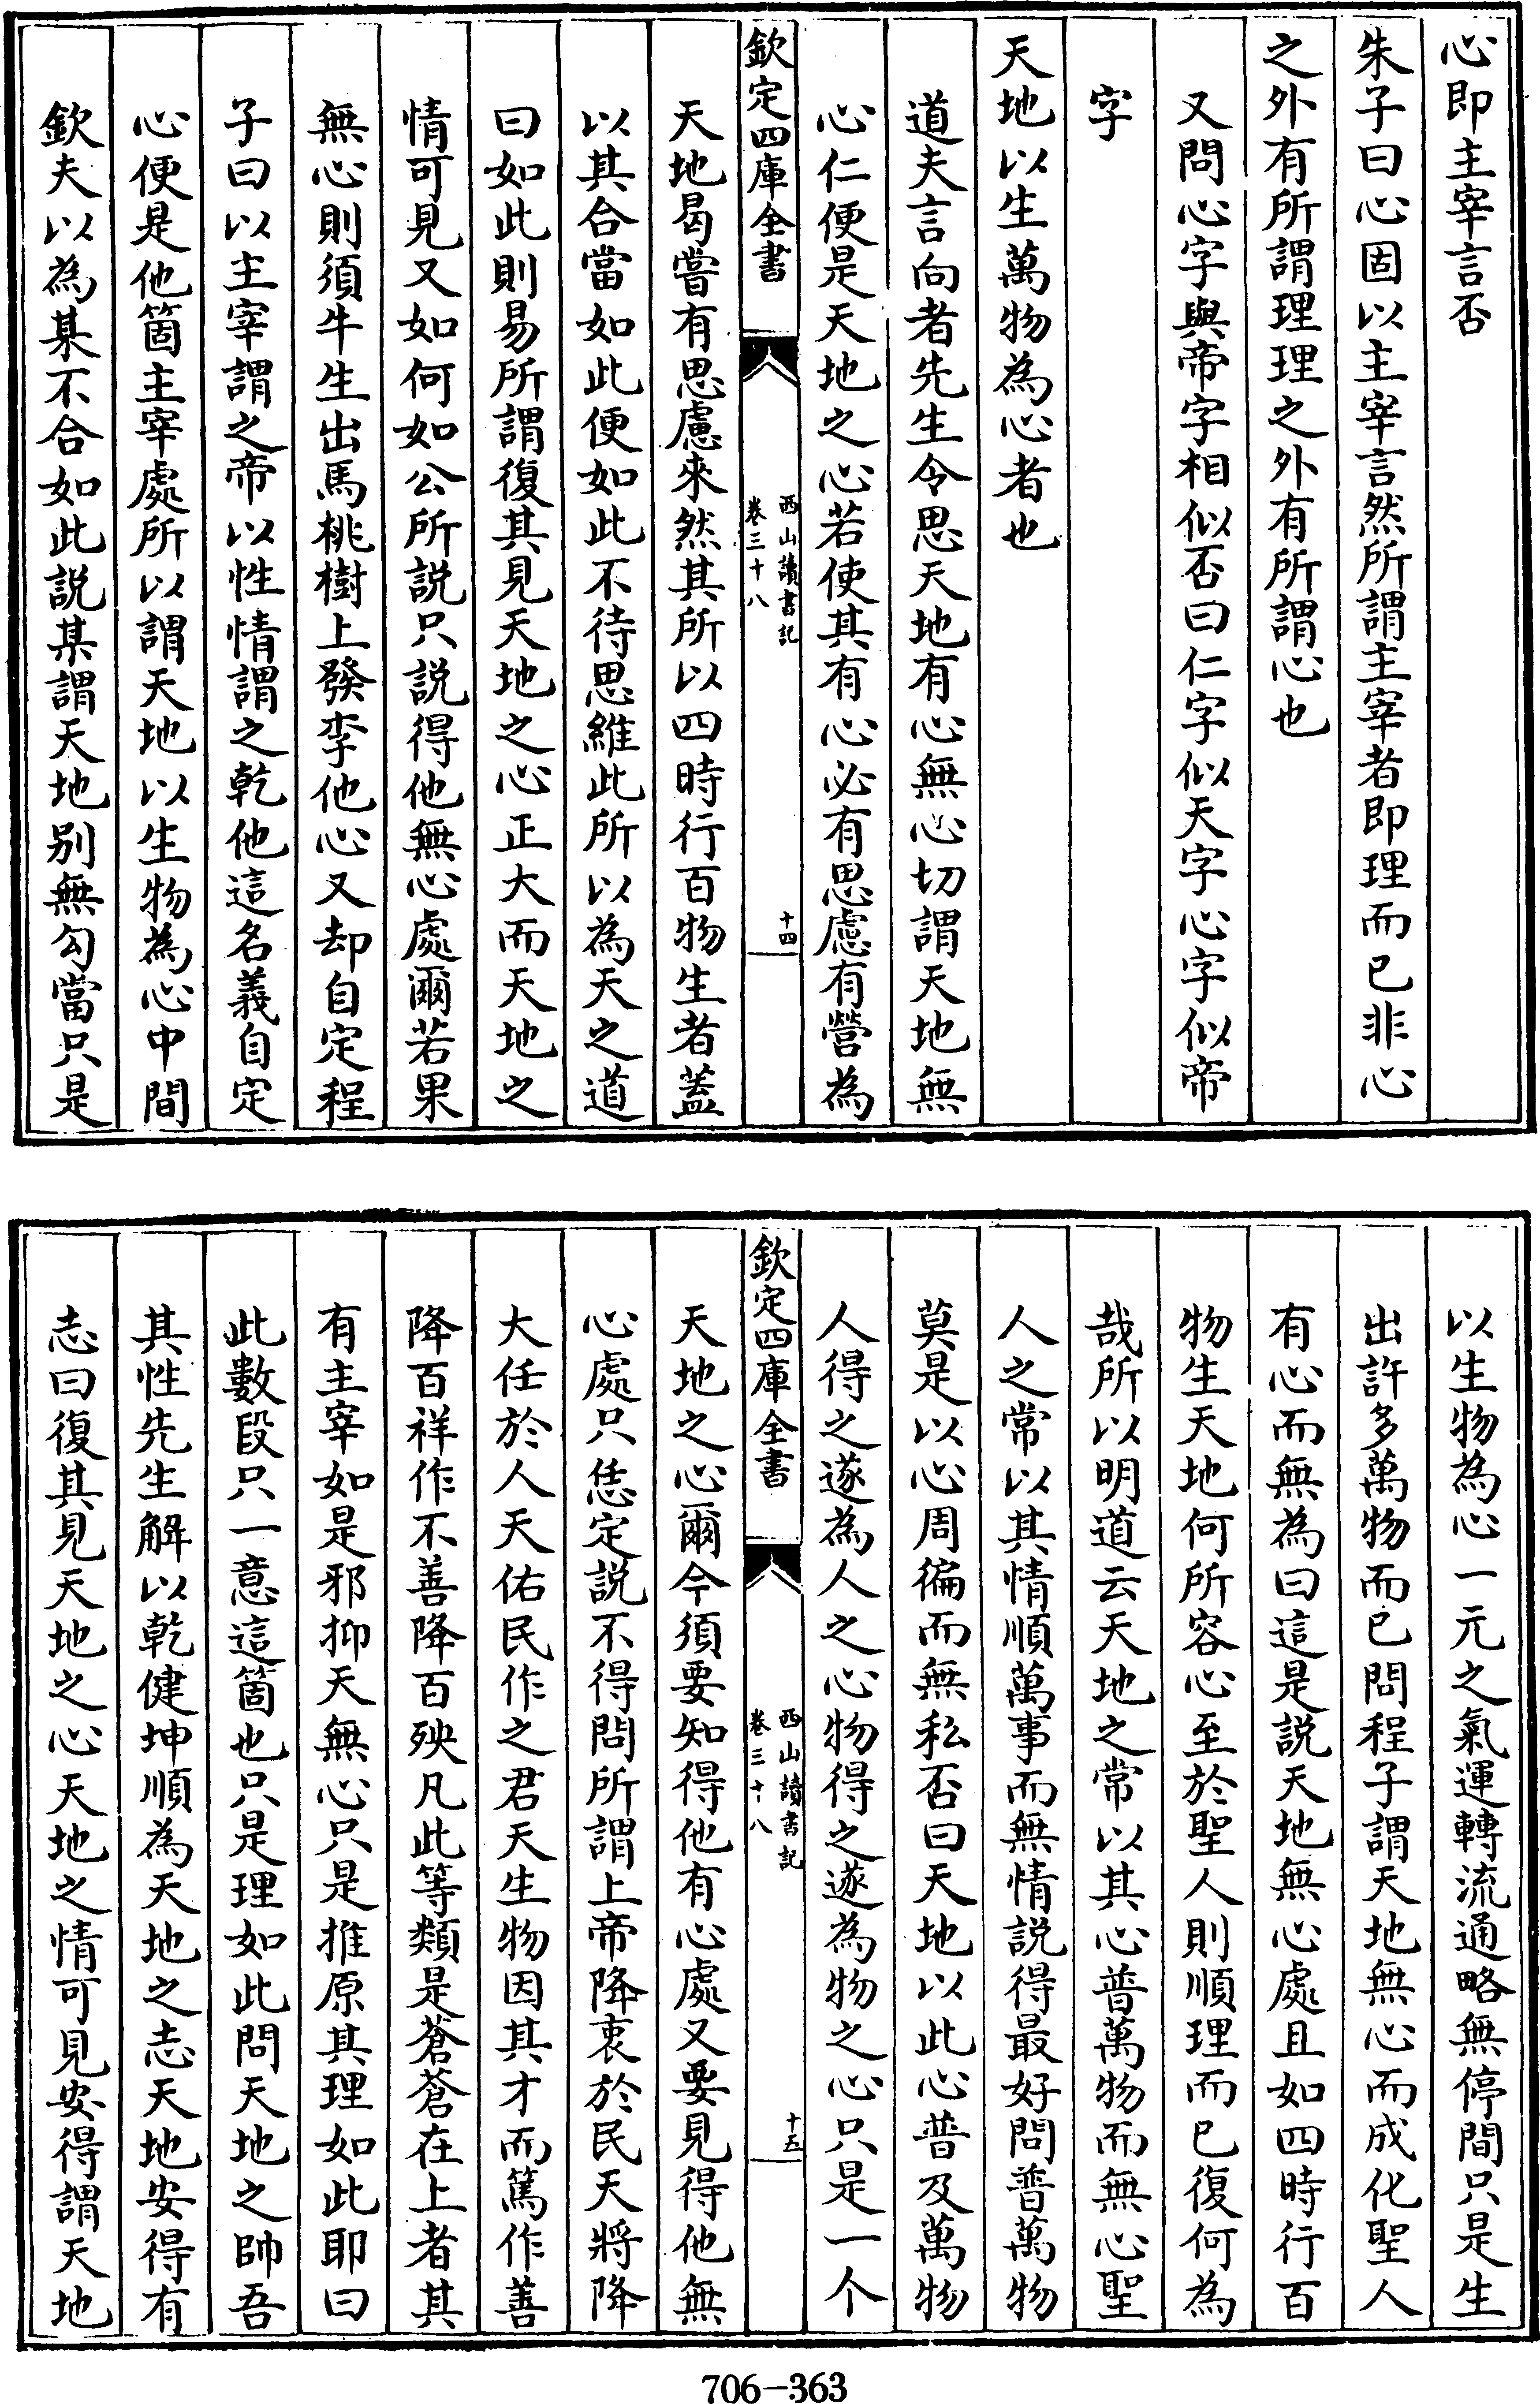 心即主宰言否
朱子曰心固以主宰言然所謂主宰者即理而已非心
之外有所謂理理之外有所謂心也
又問心字與帝字相似否曰仁字似天字心字似帝
字
天地以生萬物為心者也
道夫言向者先生令思天地有心無心切謂天地無
心仁便是天地之心若使其有心必有思慮有營為
欽定四庫全書
西山讀書記
卷三十八
十四
天地曷嘗有思慮來然其所以四時行百物生者蓋
以其合當如此便如此不待思維此所以為天之道
曰如此則易所謂復其見天地之心正大而天地之
情可見又如何如公所説只説得他無心處爾若果
無心則須牛生出馬桃樹上發李他心又却自定程
子曰以主宰謂之帝以性情謂之乾他這名義自定
心便是他箇主宰處所以謂天地以生物為心中間
欽夫以為某不合如此説某謂天地别無勾當只是
以生物為心一元之氣運轉流通略無停間只是生
出許多萬物而已問程子謂天地無心而成化聖人
有心而無為曰這是説天地無心處且如四時行百
物生天地何所容心至於聖人則順理而已復何為
哉所以明道云天地之常以其心普萬物而無心聖
人之常以其情順萬事而無情説得最好問普萬物
莫是以心周徧而無私否曰天地以此心普及萬物
人得之遂為人之心物得之遂為物之心只是一个
欽定四庫全書
西山讀書記
卷三十八
十五
天地之心爾今須要知得他有心處又要見得他無
心處只恁定説不得問所謂上帝降衷於民天將降
大任於人天佑民作之君天生物因其才而篤作善
降百祥作不善降百殃凡此等類是蒼蒼在上者其
有主宰如是邪抑天無心只是推原其理如此耶曰
此數段只一意這箇也只是理如此問天地之帥吾
其性先生解以乾健坤順為天地之志天地安得有
志曰復其見天地之心天地之情可見安得謂天地
706-363